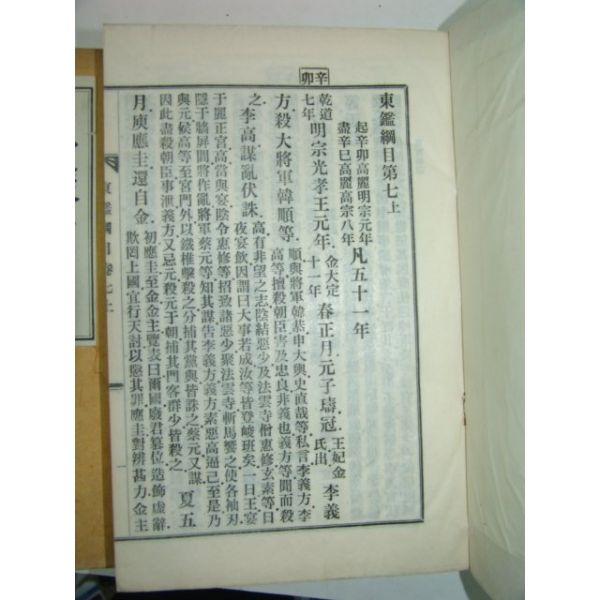 辛卯
東鑑綱目第七上
起辛卯高麗明宗元年
盡辛巳高麗高宗八年
凡五十一年
乾道七年
明宗光孝王元年
金大定十一年
春正月元子璹冠
王妃金氏出
李義
方殺大將軍韓順等
順與將軍韓恭申大與史直哉等私言李義方李
高等擅殺朝臣害及忠良非義也義方等聞而殺
之
李高謀亂伏誅
高有非望之志陰結惡少及法雲寺僧惠修玄素等日
夜宴飮因謂曰大事若成汝等皆登峻班矣一日王宴
于麗正宮高當與宴陰令惠修等招致諸惡少聚法雲寺斬馬饗之使各袖刃
隱于牆屏間將作亂將軍蔡元等知其謀告李義方義方素惡高逼己至是乃
與元候高等至宮門外以鐵椎擊殺之分捕其黨與皆誅之蔡元又謀
因此盡殺朝臣事泄義方又忌元殺元于朝捕其門客群少皆殺之
夏五
月庾應圭還自金
初應圭至金金主覽表曰爾國廢君篡位造飾虛辭
欺罔上國宜行天討以懲其罪應圭對辨甚力金主
東鑑綱目卷七上